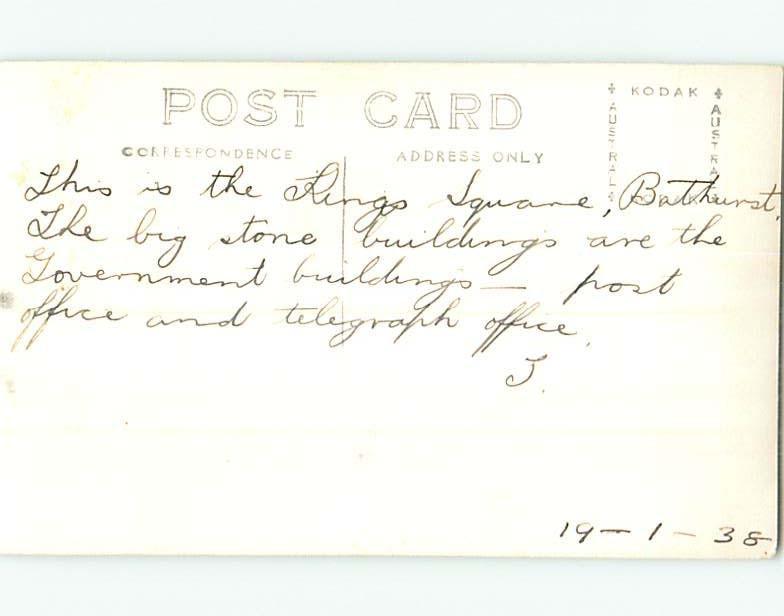 POST CARD
KODAK
AUSTRAL
AUSTRA
CORRESPONDENCE
ADDRESS ONLY
This is the Kings Square, Bathurst.
The big stone buildings are the
Government buildings — post
office and telegraph office.
J.
19 - 1 - 38